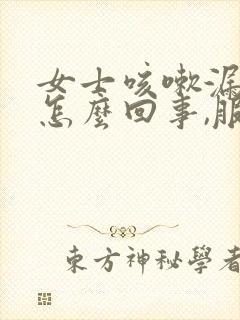 女士咳嗽漏
怎麼回事,服
東方神秘學者